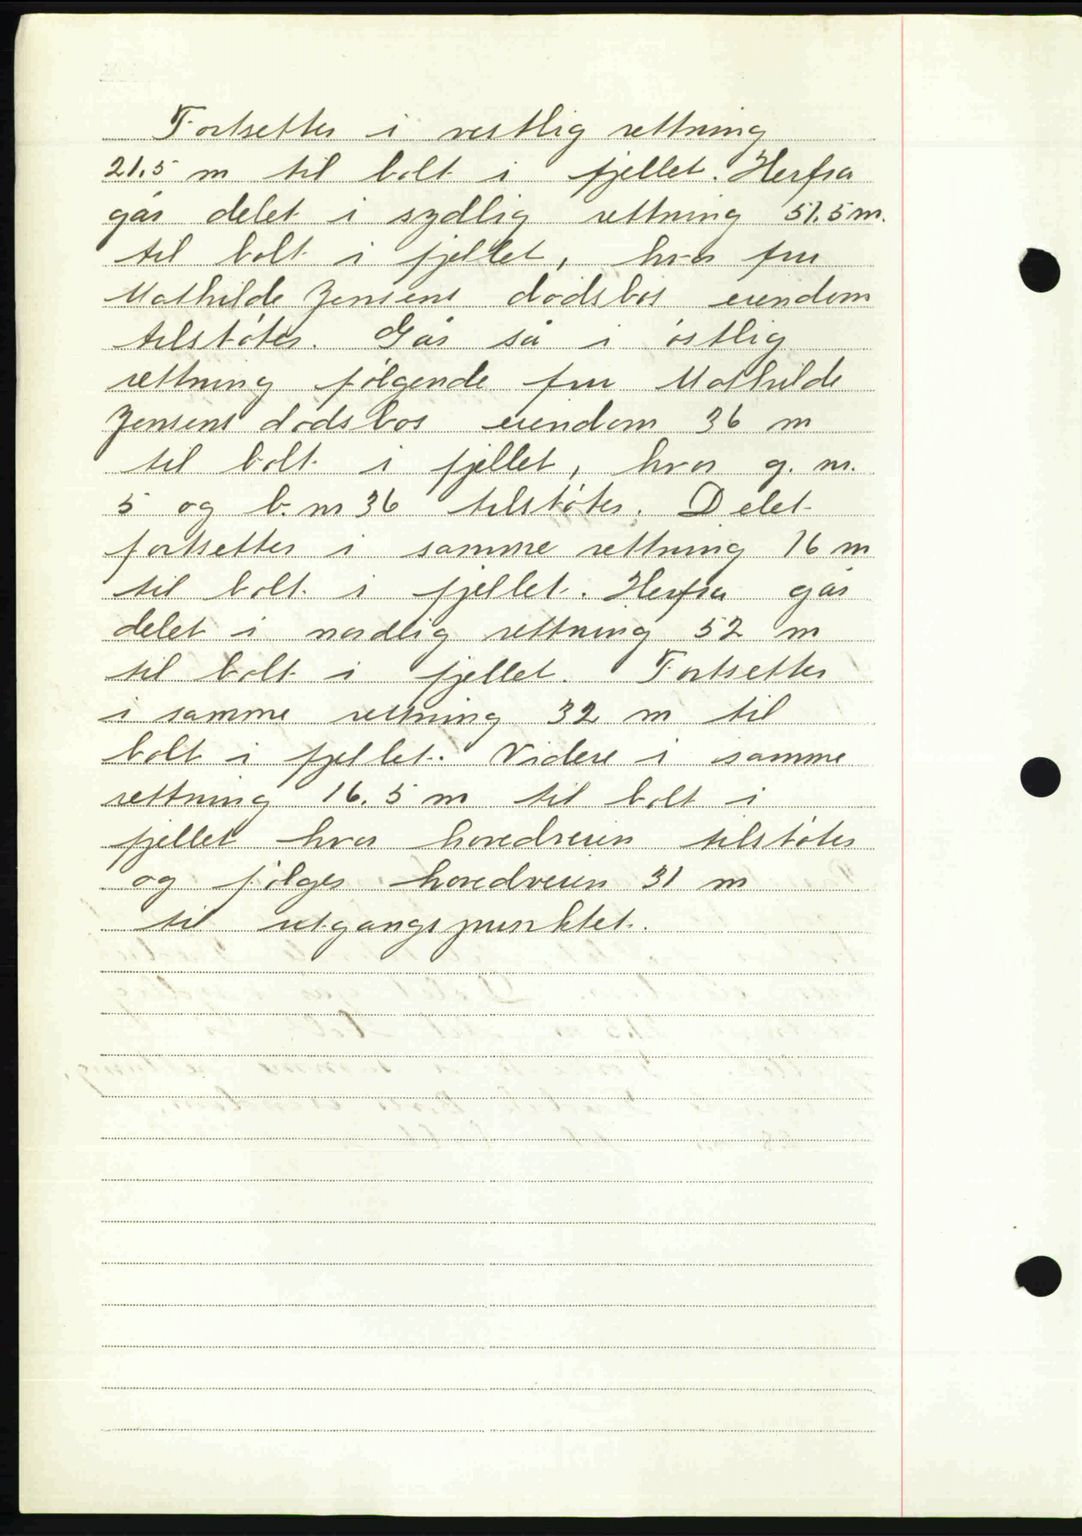 Fortsetter i vestlig rettning
21.5 m til bolt i fjellet. Herfra
går delet i sydlig rettning 51.5 m.
til bolt i fjellet, hvor fru
Mathilde Jensens dødsbos eiendom
tilstøter. Går så i östlig
rettning følgende fru Mathilde
Jensens dødsbos eiendom 36 m
til bolt i fjellet, hvor g. nr.
5 og b. nr 36 tilstöter. Delet
fortsetter i samme rettning 16 m
til bolt i fjellet. Herfra går
delet i nordlig rettning 52 m
til bolt i fjellet. Fortsetter
i samme rettning 32 m til
bolt i fjellet. Videre i samme
rettning 16.5 m til bolt i
fjellet hvor hovedveien tilstöter
og fölges hovedveien 31 m
til utgangspunktet.